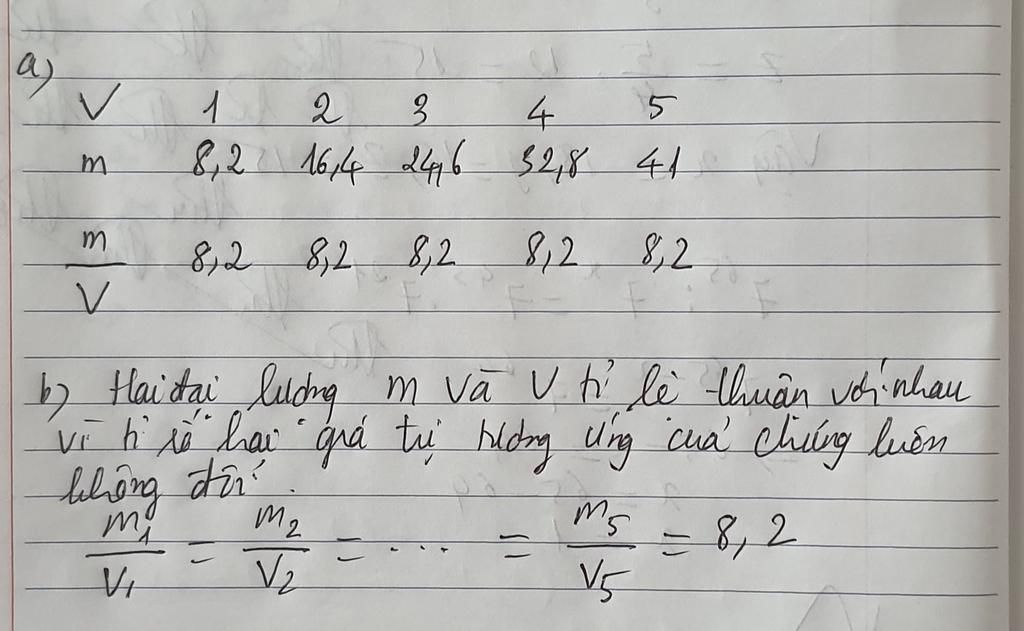 a)
V 1 2 3 4 5
m 8,2 16,4 24,6 32,8 41
m/V 8,2 8,2 8,2 8,2 8,2
b) Hai đại lượng m và V tỉ lệ thuận với nhau
vì tỉ số hai quá tự tương ứng của chúng luôn
không đổi.
m₁/V₁ = m₂/V₂ = ... = m₅/V₅ = 8,2